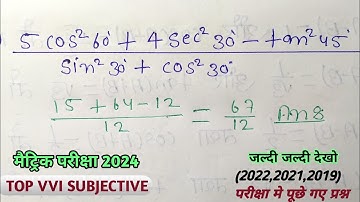 5 cos² 60° + 4 Sec² 30° - tan² 45°
Sin² 30° + cos² 30°
15 + 64 - 12
12
= 67
12
Ans
मैट्रिक परीक्षा 2024
TOP VVI SUBJECTIVE
जल्दी जल्दी देखो
(2022,2021,2019)
परीक्षा मे पूछे गए प्रश्न